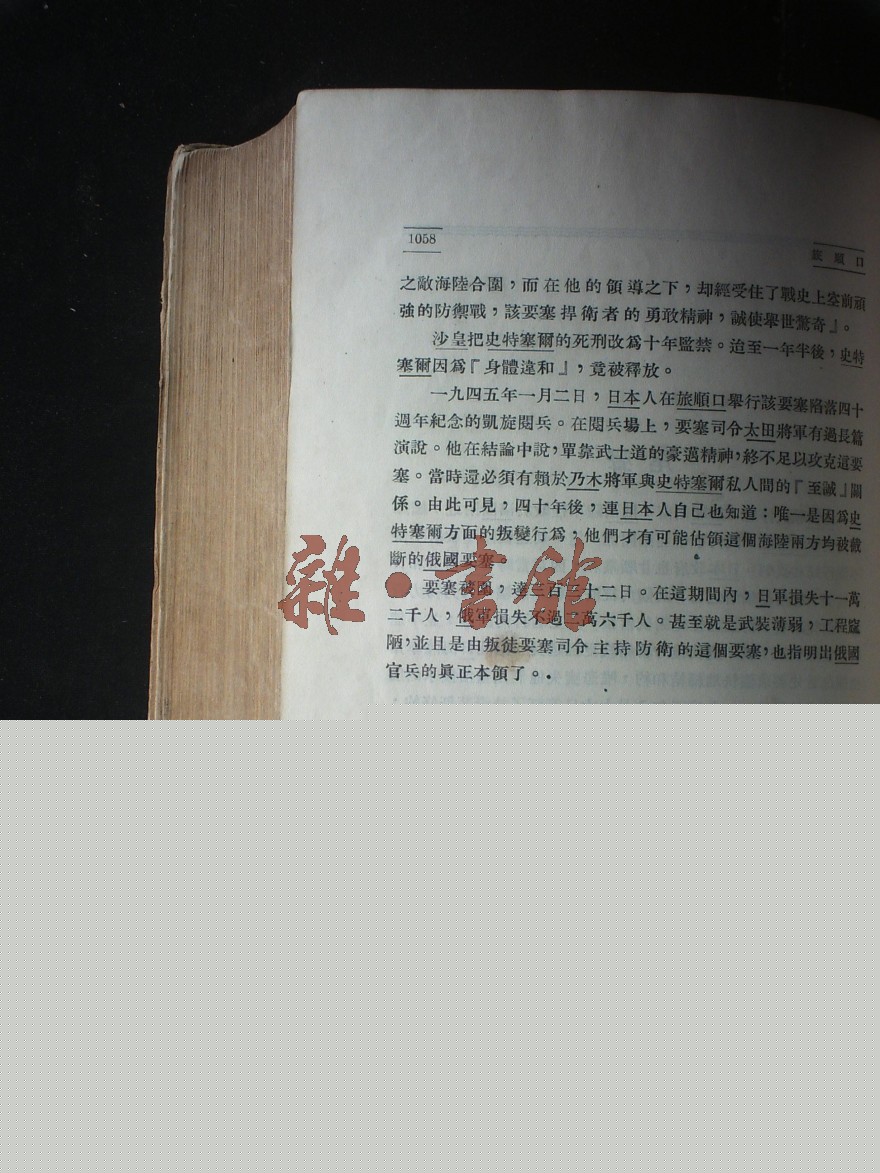 1058
旅順口
之敵海陸合圍，而在他的領導之下，却經受住了戰史上空前頑
強的防禦戰，該要塞捍衛者的勇敢精神，誠使舉世驚奇』。
沙皇把史特塞爾的死刑改爲十年監禁。迨至一年半後，史特
塞爾因爲『身體違和』，竟被釋放。
一九四五年一月二日，日本人在旅順口舉行該要塞陷落四十
週年紀念的凱旋閱兵。在閱兵場上，要塞司令太田將軍有過長篇
演說。他在結論中說，單靠武士道的豪邁精神，終不足以攻克這要
塞。當時還必須有賴於乃木將軍與史特塞爾私人間的『至誠』關
係。由此可見，四十年後，連日本人自己也知道：唯一是因爲史
特塞爾方面的叛變行爲，他們才有可能佔領這個海陸兩方均被截
斷的俄國要塞。
要塞被圍，達三百二十二日。在這期間內，日軍損失十一萬
二千人，俄軍損失不過二萬六千人。甚至就是武裝薄弱，工程窳
陋，並且是由叛徒要塞司令主持防衛的這個要塞，也指明出俄國
官兵的眞正本領了。
雜·書館